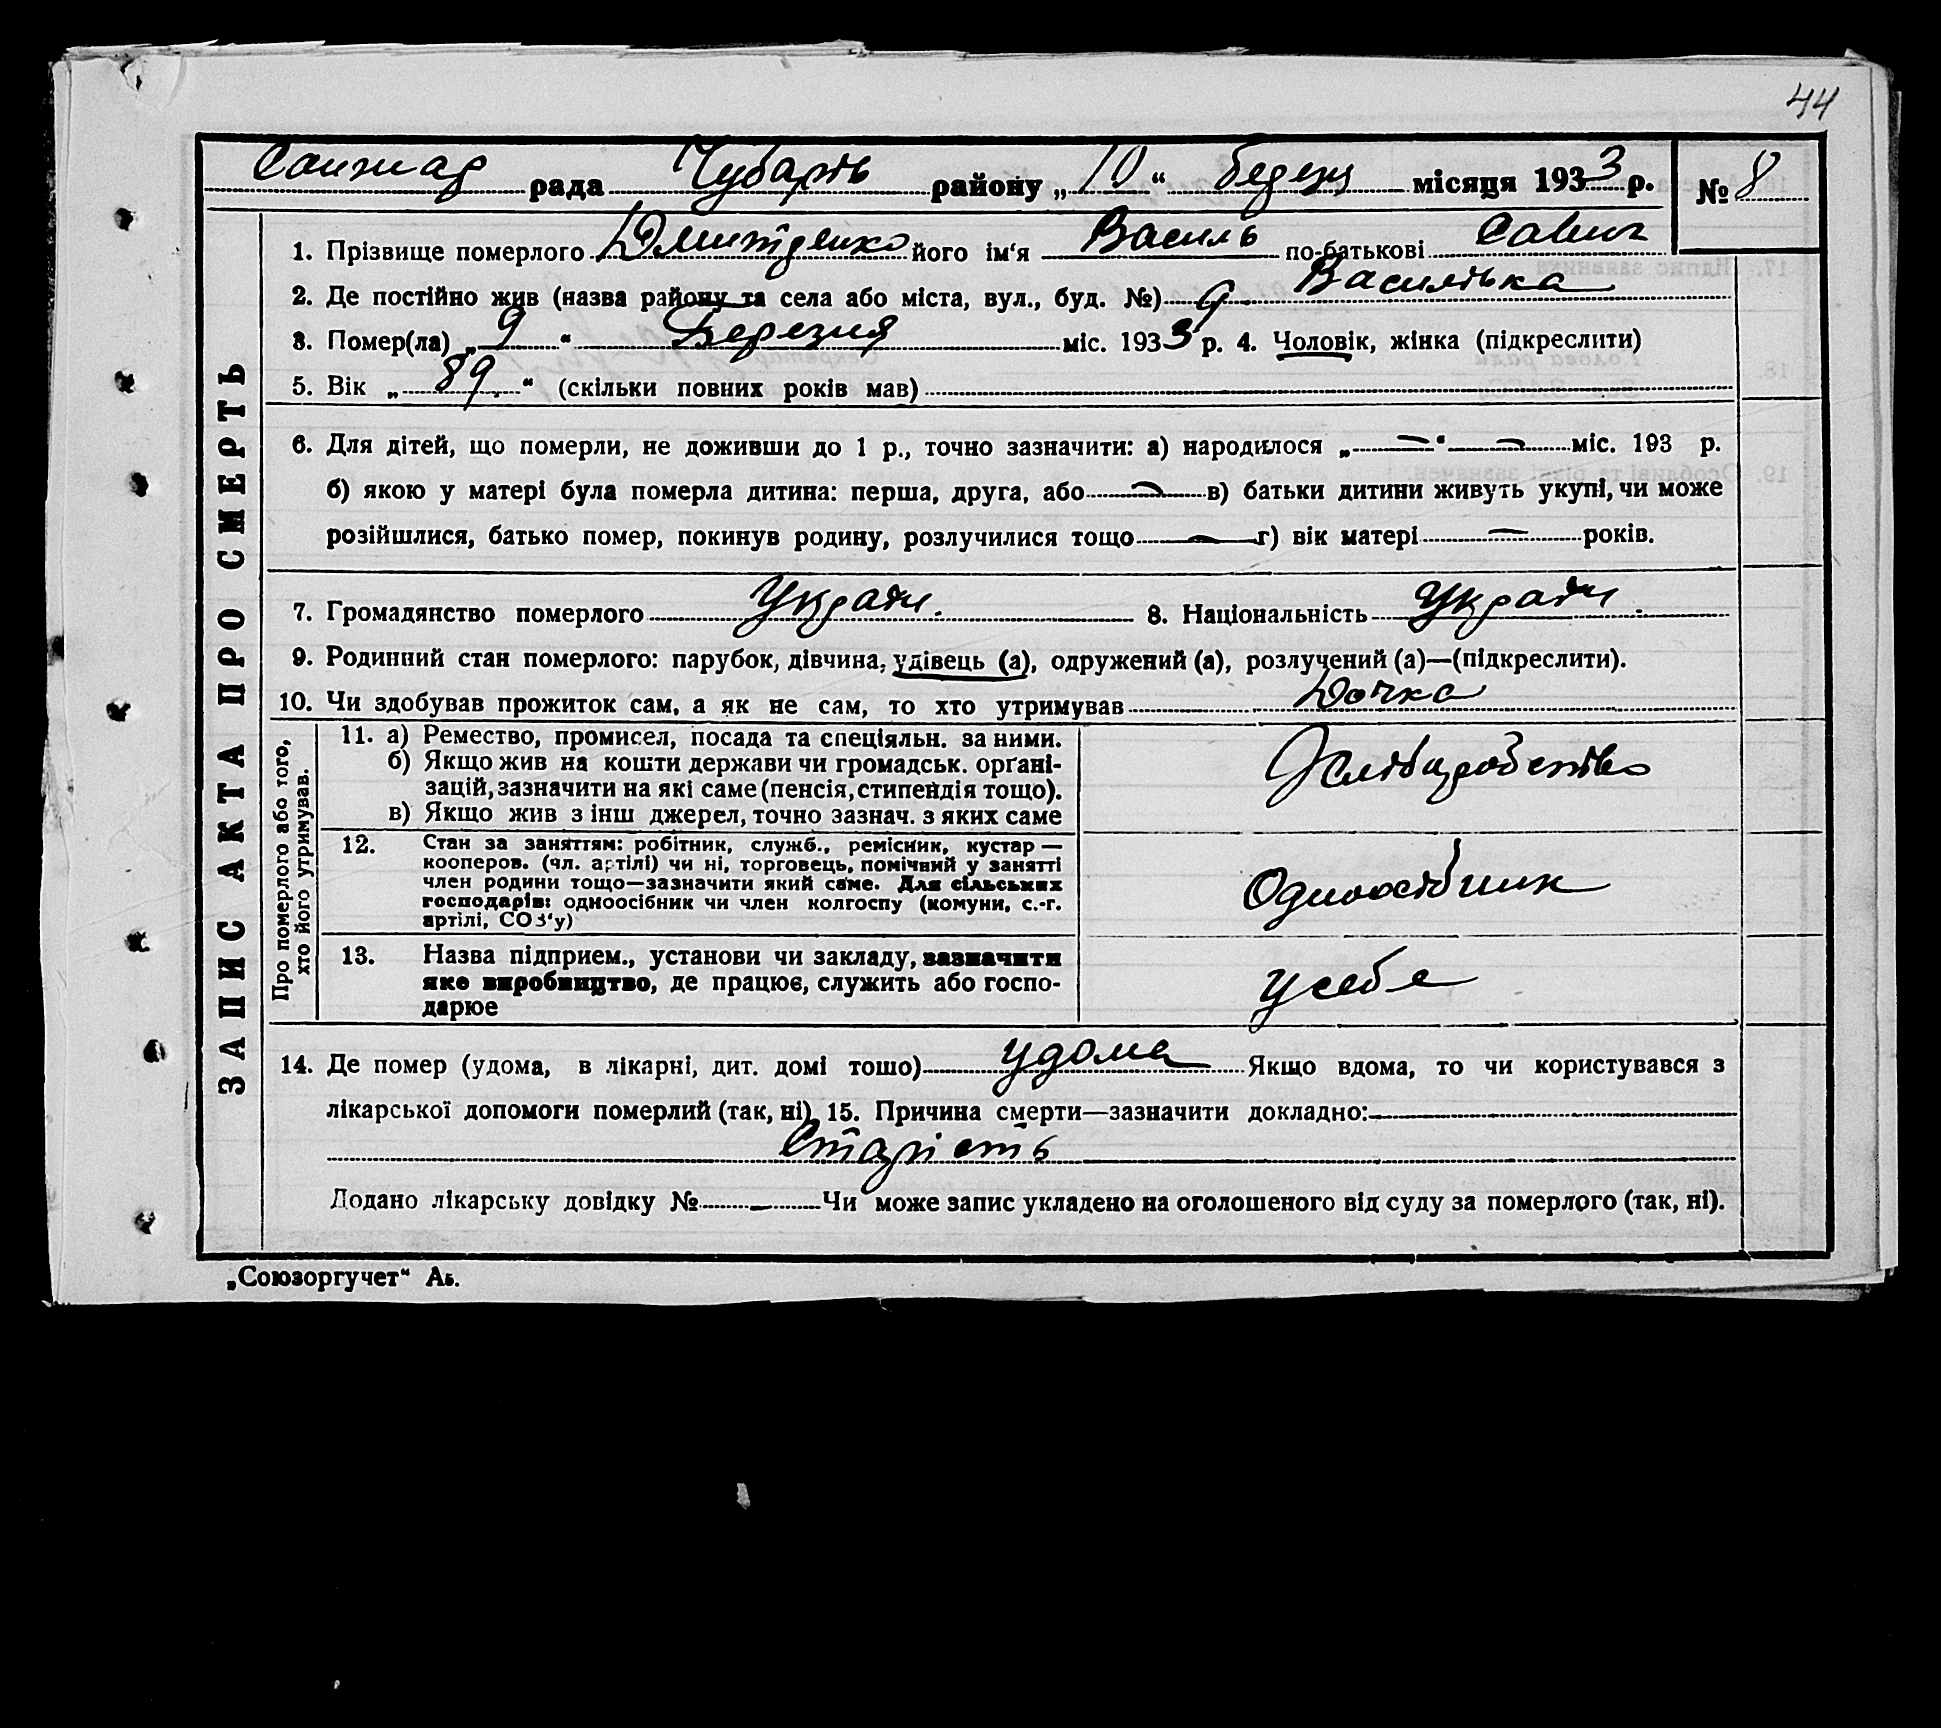 44
Санжар рада Чубарів району „ 10 “ березня місяця 1933 р. № 8
ЗАПИС АКТА ПРО СМЕРТЬ
1. Прізвище померлого Дмитренко його ім'я Василь по-батькові Савич
2. Де постійно жив (назва району та села або міста, вул., буд. №) с. Василівка
3. Помер(ла) „ 9 “ Березня міс. 1933 р. 4. Чоловік, жінка (підкреслити)
5. Вік „ 89. “ (скільки повних років мав)
6. Для дітей, що померли, не доживши до 1 р., точно зазначити: а) народилося „ — “ — міс. 193 р.
б) якою у матері була померла дитина: перша, друга, або — в) батьки дитини живуть укупі, чи може
розійшлися, батько помер, покинув родину, розлучилися тощо — г) вік матері — років.
7. Громадянство померлого Україн. 8. Національність Україн.
9. Родинний стан померлого: парубок, дівчина, удівець (а), одружений (а), розлучений (а)—(підкреслити).
10. Чи здобував прожиток сам, а як не сам, то хто утримував Дочка
Про померлого або того,
хто його утримував.
11. а) Ремество, промисел, посада та спеціяльн. за ними.
б) Якщо жив на кошти держави чи громадськ. орґані-
зацій, зазначити на які саме (пенсія, стипендія тощо).
в) Якщо жив з інш джерел, точно зазнач. з яких саме
Хліборобство
12. Стан за заняттям: робітник, служб., ремісник, кустар —
кооперов. (чл. артілі) чи ні, торговець, помічний у занятті
член родини тощо—зазначити який саме. Для сільських
господарів: одноосібник чи член колгоспу (комуни, с.-г.
артілі, СОЗ'у)
Одноосібник
13. Назва підприєм., установи чи закладу, зазначити
яке виробництво, де працює, служить або госпо-
дарює
у себе
14. Де помер (удома, в лікарні, дит. домі тошо) удома Якщо вдома, то чи користувався з
лікарської допомоги померлий (так, ні) 15. Причина смерти—зазначити докладно:
Старість
Додано лікарську довідку № — Чи може запис укладено на оголошеного від суду за померлого (так, ні).
„Союзоргучет“ Аь.